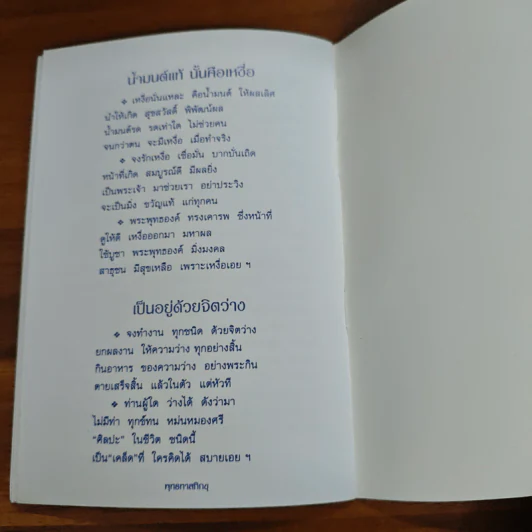 น้ำมนต์แท้ นั้นคือเหงื่อ
❖ เหงื่อนั่นแหละ คือน้ำมนต์ ให้ผลเลิศ
นำให้เกิด สุขสวัสดิ์ พิพัฒน์ผล
น้ำมนต์รด รดเท่าใด ไม่ช่วยคน
จนกว่าตน จะมีเหงื่อ เมื่อทำจริง
❖ จงรักเหงื่อ เชื่อมั่น บากบั่นเถิด
หน้าที่เกิด สมบูรณ์ดี มีผลยิ่ง
เป็นพระเจ้า มาช่วยเรา อย่าประวิง
จะเป็นมิ่ง ขวัญแท้ แก่ทุกคน
❖ พระพุทธองค์ ทรงเคารพ ซึ่งหน้าที่
ดูให้ดี เหงื่อออกมา มหาผล
ใช้บูชา พระพุทธองค์ มิ่งมงคล
สาธุชน มีสุขเหลือ เพราะเหงื่อเอย ฯ
เป็นอยู่ด้วยจิตว่าง
❖ จงทำงาน ทุกชนิด ด้วยจิตว่าง
ยกผลงาน ให้ความว่าง ทุกอย่างสิ้น
กินอาหาร ของความว่าง อย่างพระกิน
ตายเสร็จสิ้น แล้วในตัว แต่หัวที
❖ ท่านผู้ใด ว่างได้ ดังว่ามา
ไม่มีท่า ทุกข์ทน หม่นหมองศรี
"ศิลปะ" ในชีวิต ชนิดนี้
เป็น"เคล็ด"ที่ ใครคิดได้ สบายเอย ฯ
พุทธทาสภิกขุ